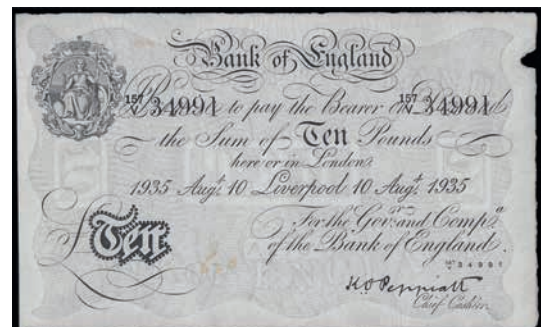 Bank of England
157 V 34991 to pay the Bearer 157 V 34991
the Sum of Ten Pounds
here or in London.
1935 Augt. 10 Liverpool 10 Augt. 1935
For the Govr. and Compa.
of the Bank of England.
34991
£Ten
K O Peppiatt
Chief Cashier